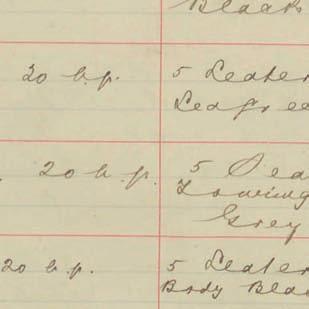 Black
20 h.p. 5 Seater
Seagree
20 h.p. 5 Sea
Towing
Grey
20 h.p. 5 Seater
Body Blac